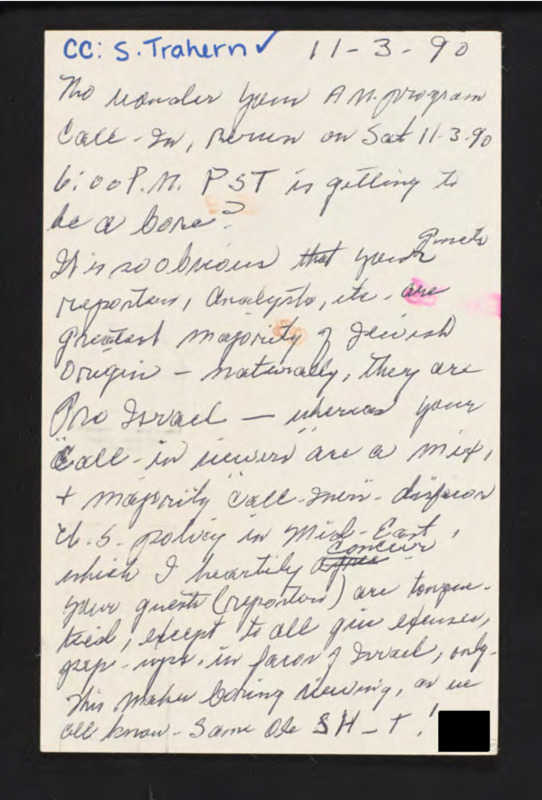 CC: S. Trahern ✓ 11-3-90
No wonder your A.M. program
Call-In, Rerun on Sat 11-3-90
6:00 P.M. PST is getting to
be a bore?
It is so obvious that your guests
reporters, analysts, etc. are
greatest majority of Jewish
Origin - naturally, they are
Pro Israel - whereas your
"Call-in viewers" are a mix,
+ majority "call-iners" - disfavor
U.S. policy in Mid-East,
which I heartily agree concur
Your guests (reporters) are tongue-
tied, except to all give excuses,
in favor of Israel, only.
This makes boring viewing, as we
all know - Same Ole SH_T!